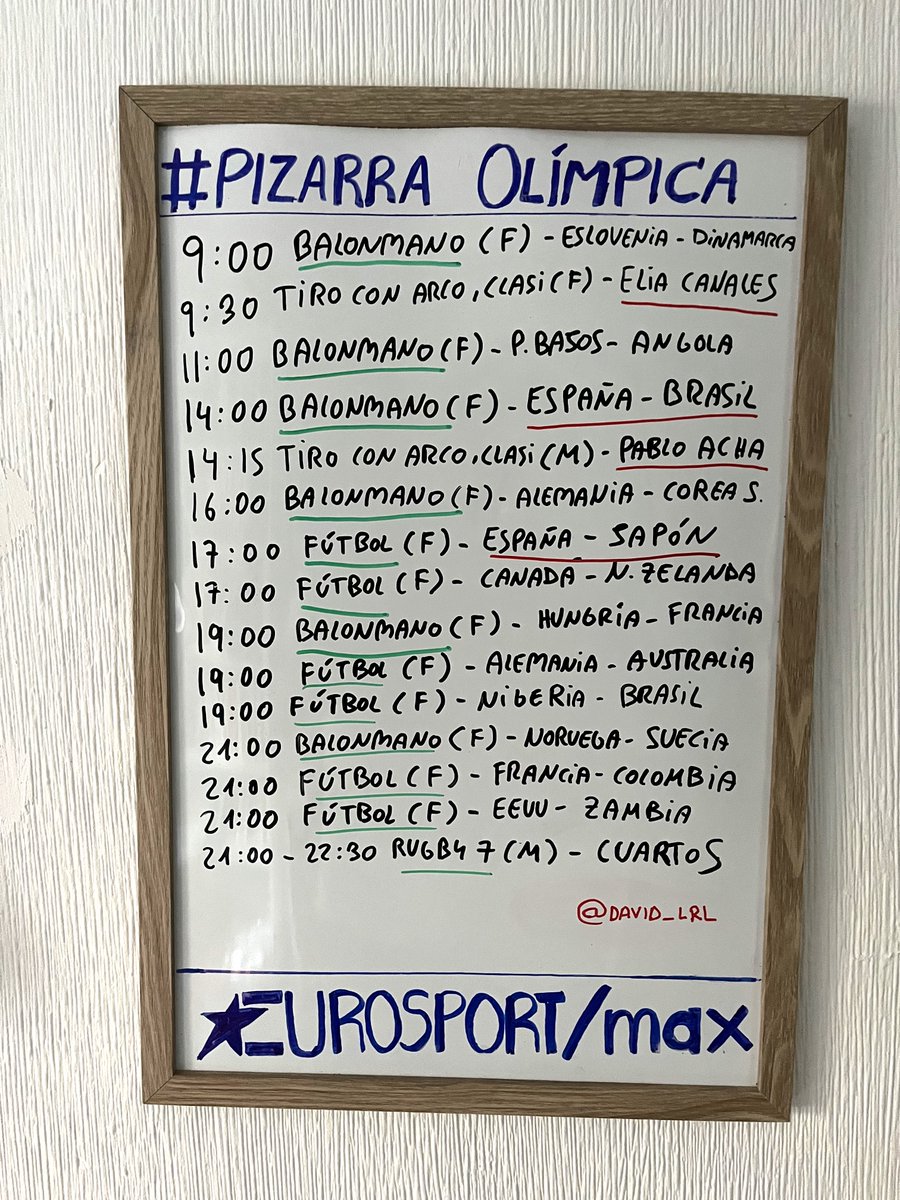 #PIZARRA OLÍMPICA
9:00 BALONMANO (F) - ESLOVENIA - DINAMARCA
9:30 TIRO CON ARCO, CLASI (F) - ELIA CANALES
11:00 BALONMANO (F) - P. BAJOS - ANGOLA
14:00 BALONMANO (F) - ESPAÑA - BRASIL
14:15 TIRO CON ARCO, CLASI (M) - PABLO ACHA
16:00 BALONMANO (F) - ALEMANIA - COREA S.
17:00 FÚTBOL (F) - ESPAÑA - JAPÓN
17:00 FÚTBOL (F) - CANADA - N. ZELANDA
19:00 BALONMANO (F) - HUNGRÍA - FRANCIA
19:00 FÚTBOL (F) - ALEMANIA - AUSTRALIA
19:00 FÚTBOL (F) - NIGERIA - BRASIL
21:00 BALONMANO (F) - NORUEGA - SUECIA
21:00 FÚTBOL (F) - FRANCIA - COLOMBIA
21:00 FÚTBOL (F) - EEUU - ZAMBIA
21:00 - 22:30 RUGBY 7 (M) - CUARTOS
@DAVID_LRL
EUROSPORT/max